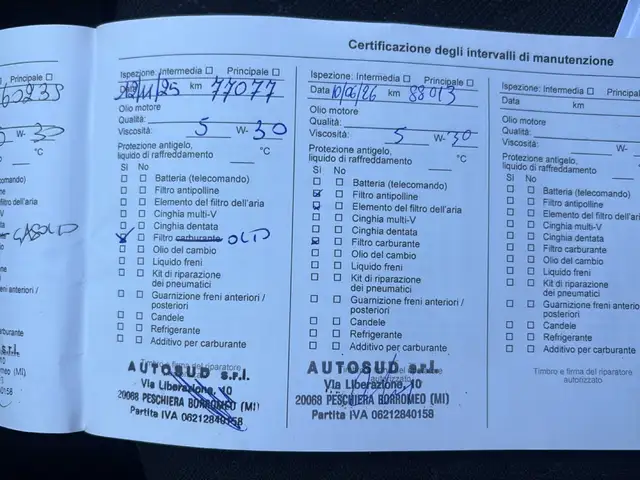 Certificazione degli intervalli di manutenzione
Principale
60239
W- 30
°C
comando)
ne
filtro dell'aria
-V
ta
GASOLIO
io
ni
zione
ci
reni anteriori /
carburante
Ispezione: Intermedia Principale
Data 12/11/25 km 77077
Olio motore
Qualità:
Viscosità: 5 W- 30
Protezione antigelo,
liquido di raffreddamento °C
Sì No
Batteria (telecomando)
Filtro antipolline
Elemento del filtro dell'aria
Cinghia multi-V
Cinghia dentata
Filtro carburante OLIO
Olio del cambio
Liquido freni
Kit di riparazione
dei pneumatici
Guarnizione freni anteriori /
posteriori
Candele
Refrigerante
Additivo per carburante
Timbro e firma del riparatore
AUTOSUD s.r.l.
Via Liberazione, 10
20068 PESCHIERA BORROMEO (MI)
Partita IVA 06212840158
Ispezione: Intermedia Principale
Data 10/06/26 km 88013
Olio motore
Qualità:
Viscosità: 5 W- 30
Protezione antigelo,
liquido di raffreddamento °C
Sì No
Batteria (telecomando)
Filtro antipolline
Elemento del filtro dell'aria
Cinghia multi-V
Cinghia dentata
Filtro carburante
Olio del cambio
Liquido freni
Kit di riparazione
dei pneumatici
Guarnizione freni anteriori /
posteriori
Candele
Refrigerante
Additivo per carburante
Timbro e firma del riparatore
autorizzato
AUTOSUD s.r.l.
Via Liberazione, 10
20068 PESCHIERA BORROMEO (MI)
Partita IVA 06212840158
Ispezione: Intermedia Principale
Data km
Olio motore
Qualità:
Viscosità: W-
Protezione antigelo,
liquido di raffreddamento
Sì No
Batteria (telecomando)
Filtro antipolline
Elemento del filtro dell'aria
Cinghia multi-V
Cinghia dentata
Filtro carburante
Olio del cambio
Liquido freni
Kit di riparazione
dei pneumatici
Guarnizione freni anteriori /
posteriori
Candele
Refrigerante
Additivo per carburante
Timbro e firma del riparatore
autorizzato